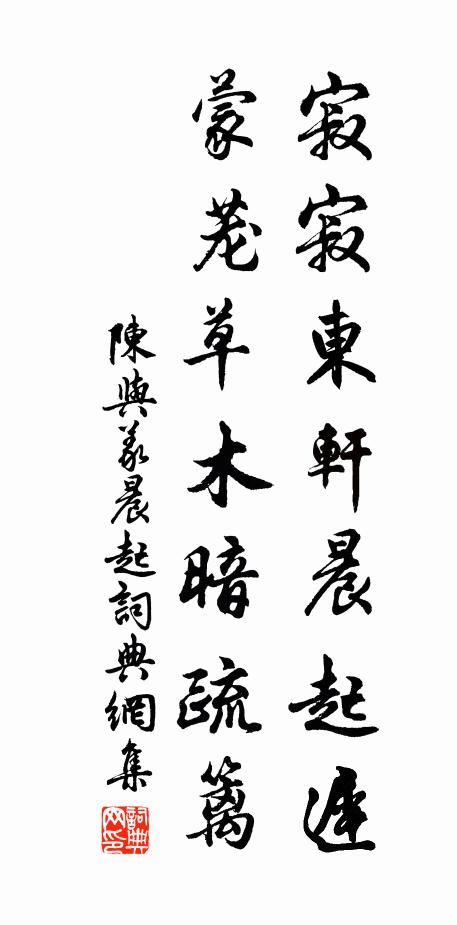 寂寂東軒晨起遲
蒙蘢草木暗疏籬
陳與義晨起詞典網集
詞典网印